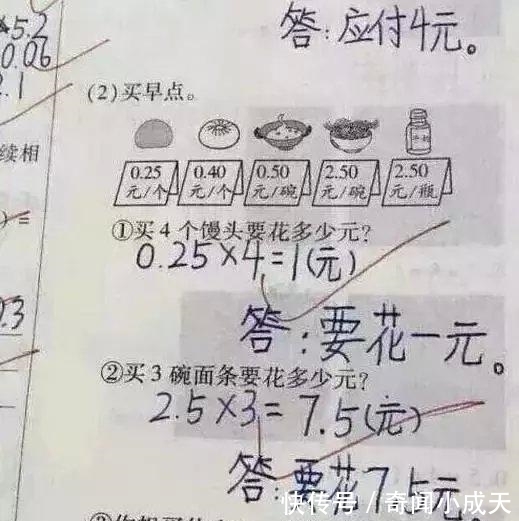 ×5.2
0.06
2.1
答:应付4元。
(2)买早点。
续相
0.25 元/个 0.40 元/个 0.50 元/碗 2.50 元/碗 2.50 元/瓶
①买4个馒头要花多少元?
0.25×4=1(元)
答:要花一元。
0.3
②买3碗面条要花多少元?
2.5×3=7.5(元)
答:要花7.5元
快传号/奇闻小成天